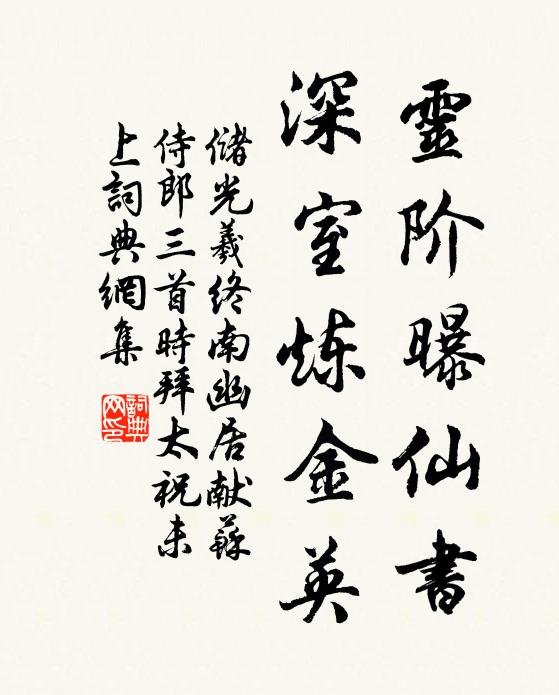 靈阶曝仙書
深室炼金英
儲光羲终南幽居献蘇
侍郎三首時拜太祝未
上詞典網集
詞典网印